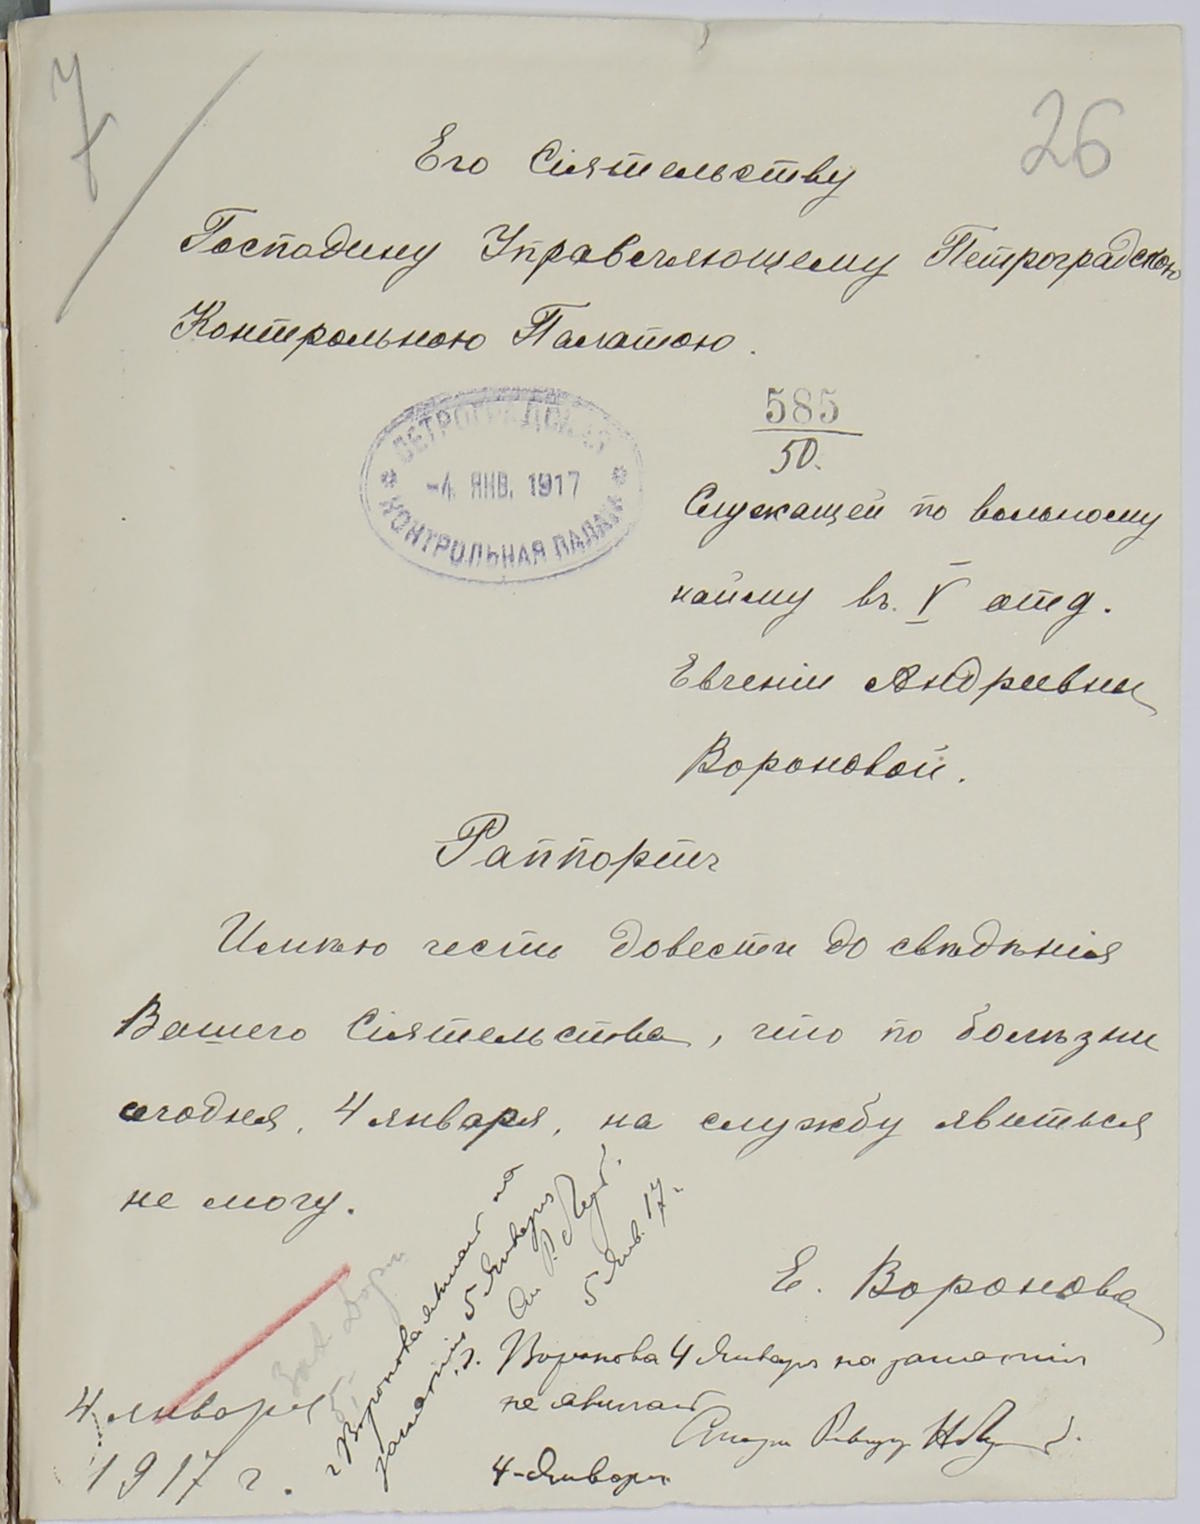 7
26
Его Сіятельству
Господину Управляющему Петроградскою
Контрольною Палатою.
ПЕТРОГРАДСКАЯ
-4 ЯНВ. 1917
КОНТРОЛЬНАЯ ПАЛАТА
585
50.
Служащей по вольному
найму въ V отд.
Евгеніи Андреевны
Вороновой.
Раппортъ
Имѣю честь довести до свѣдѣнія
Вашего Сіятельства, что по болѣзни
сегодня, 4 января, на службу явиться
не могу.
Е. Воронова
4 января
1917 г.
г. Воронова 4 Января на занятія
не явилась
4-Января
г. Воронова явилась на
занятія 5 Января
5 Янв. 17 г.